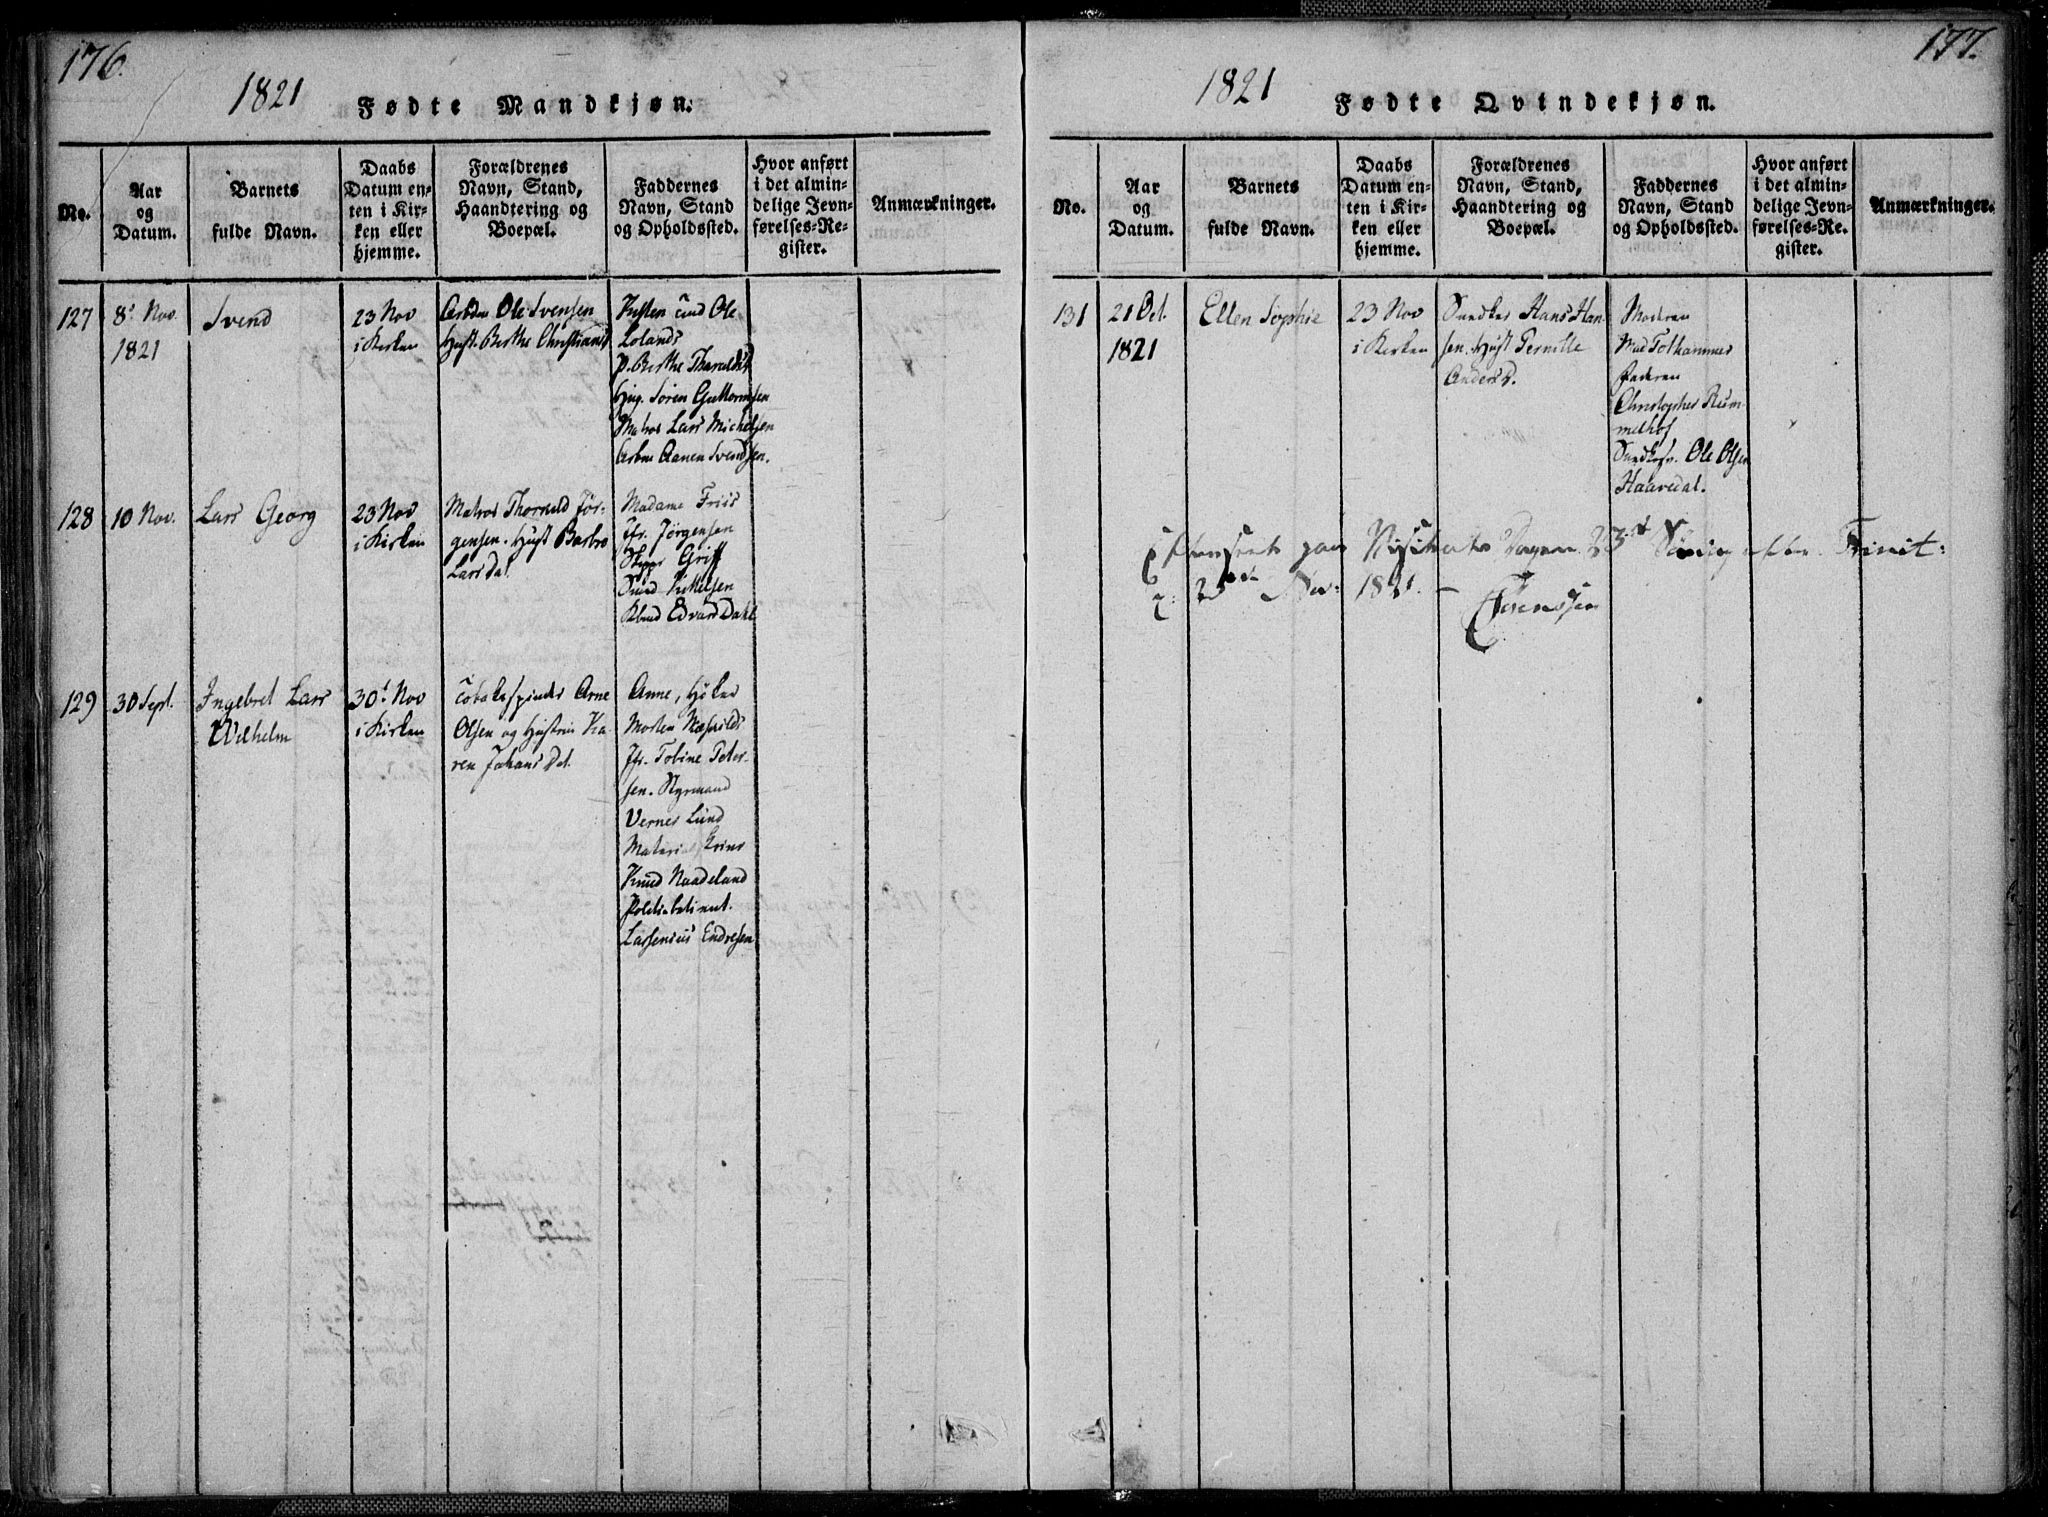 176.
1821
Fødte Mandkjøn.
No.
Aar
og
Datum.
Barnets
fulde Navn.
Daabs
Datum en-
ten i Kir-
ken eller
hjemme.
Forældrenes
Navn, Stand,
Haandtering og
Boepæl.
Faddernes
Navn, Stand
og Opholdssted.
Hvor anført
i det almin-
delige Jevn-
førelses-Re-
gister.
Anmærkninger.
127
8' Nov.
1821
Svend
23 Nov
i Kirken
Arbdm Ole Svensen
Hust. Berthe Christiansd
Ole
Lolands
P. Berthe
Søren Guttormsen
Matros Lars Michelsen
Aanen Svendsen.
128
10 Nov.
Lars Georg
23 Nov
i Kirken
Matros Thorvild Jør-
gensen. Hust Barbro
Larsdal.
Madame Friis
Jfr. Jørgensen
Skipp Griff
Kittelsen
Edvard Dahl
129
30 Sept.
Ingebret Lars
Wilhelm
30' Nov
i Kirken
Tobakspinder Arne
Olsen og Hustru Ka-
ren Johans Dal.
Anne, Høker
Morten
Jfr. Tobine Peter-
sen. Styrmand
Vernes Lund
Knud Naadeland
Politiebetient.
Lassenius Endresen
177.
1821
Fødte Qvindekjøn.
No.
Aar
og
Datum.
Barnets
fulde Navn.
Daabs
Datum en-
ten i Kir-
ken eller
hjemme.
Forældrenes
Navn, Stand,
Haandtering og
Boepæl.
Faddernes
Navn, Stand
og Opholdssted.
Hvor anført
i det almin-
delige Jevn-
førelses-Re-
gister.
Anmærkninger.
131
21 Oct.
1821
Ellen Sophie
23 Nov
i Kirken
Snedker Hans Han-
sen. Hust Pernille
Andersd.
Moderen
Mad Folkammer
Faderen
Christopher Rum-
melhof
Ole Olsen
Haavedal.
paa Visitats Dagen 23 Søndag efter Trinit:
25 Nov: 1821. –
Sørenssen